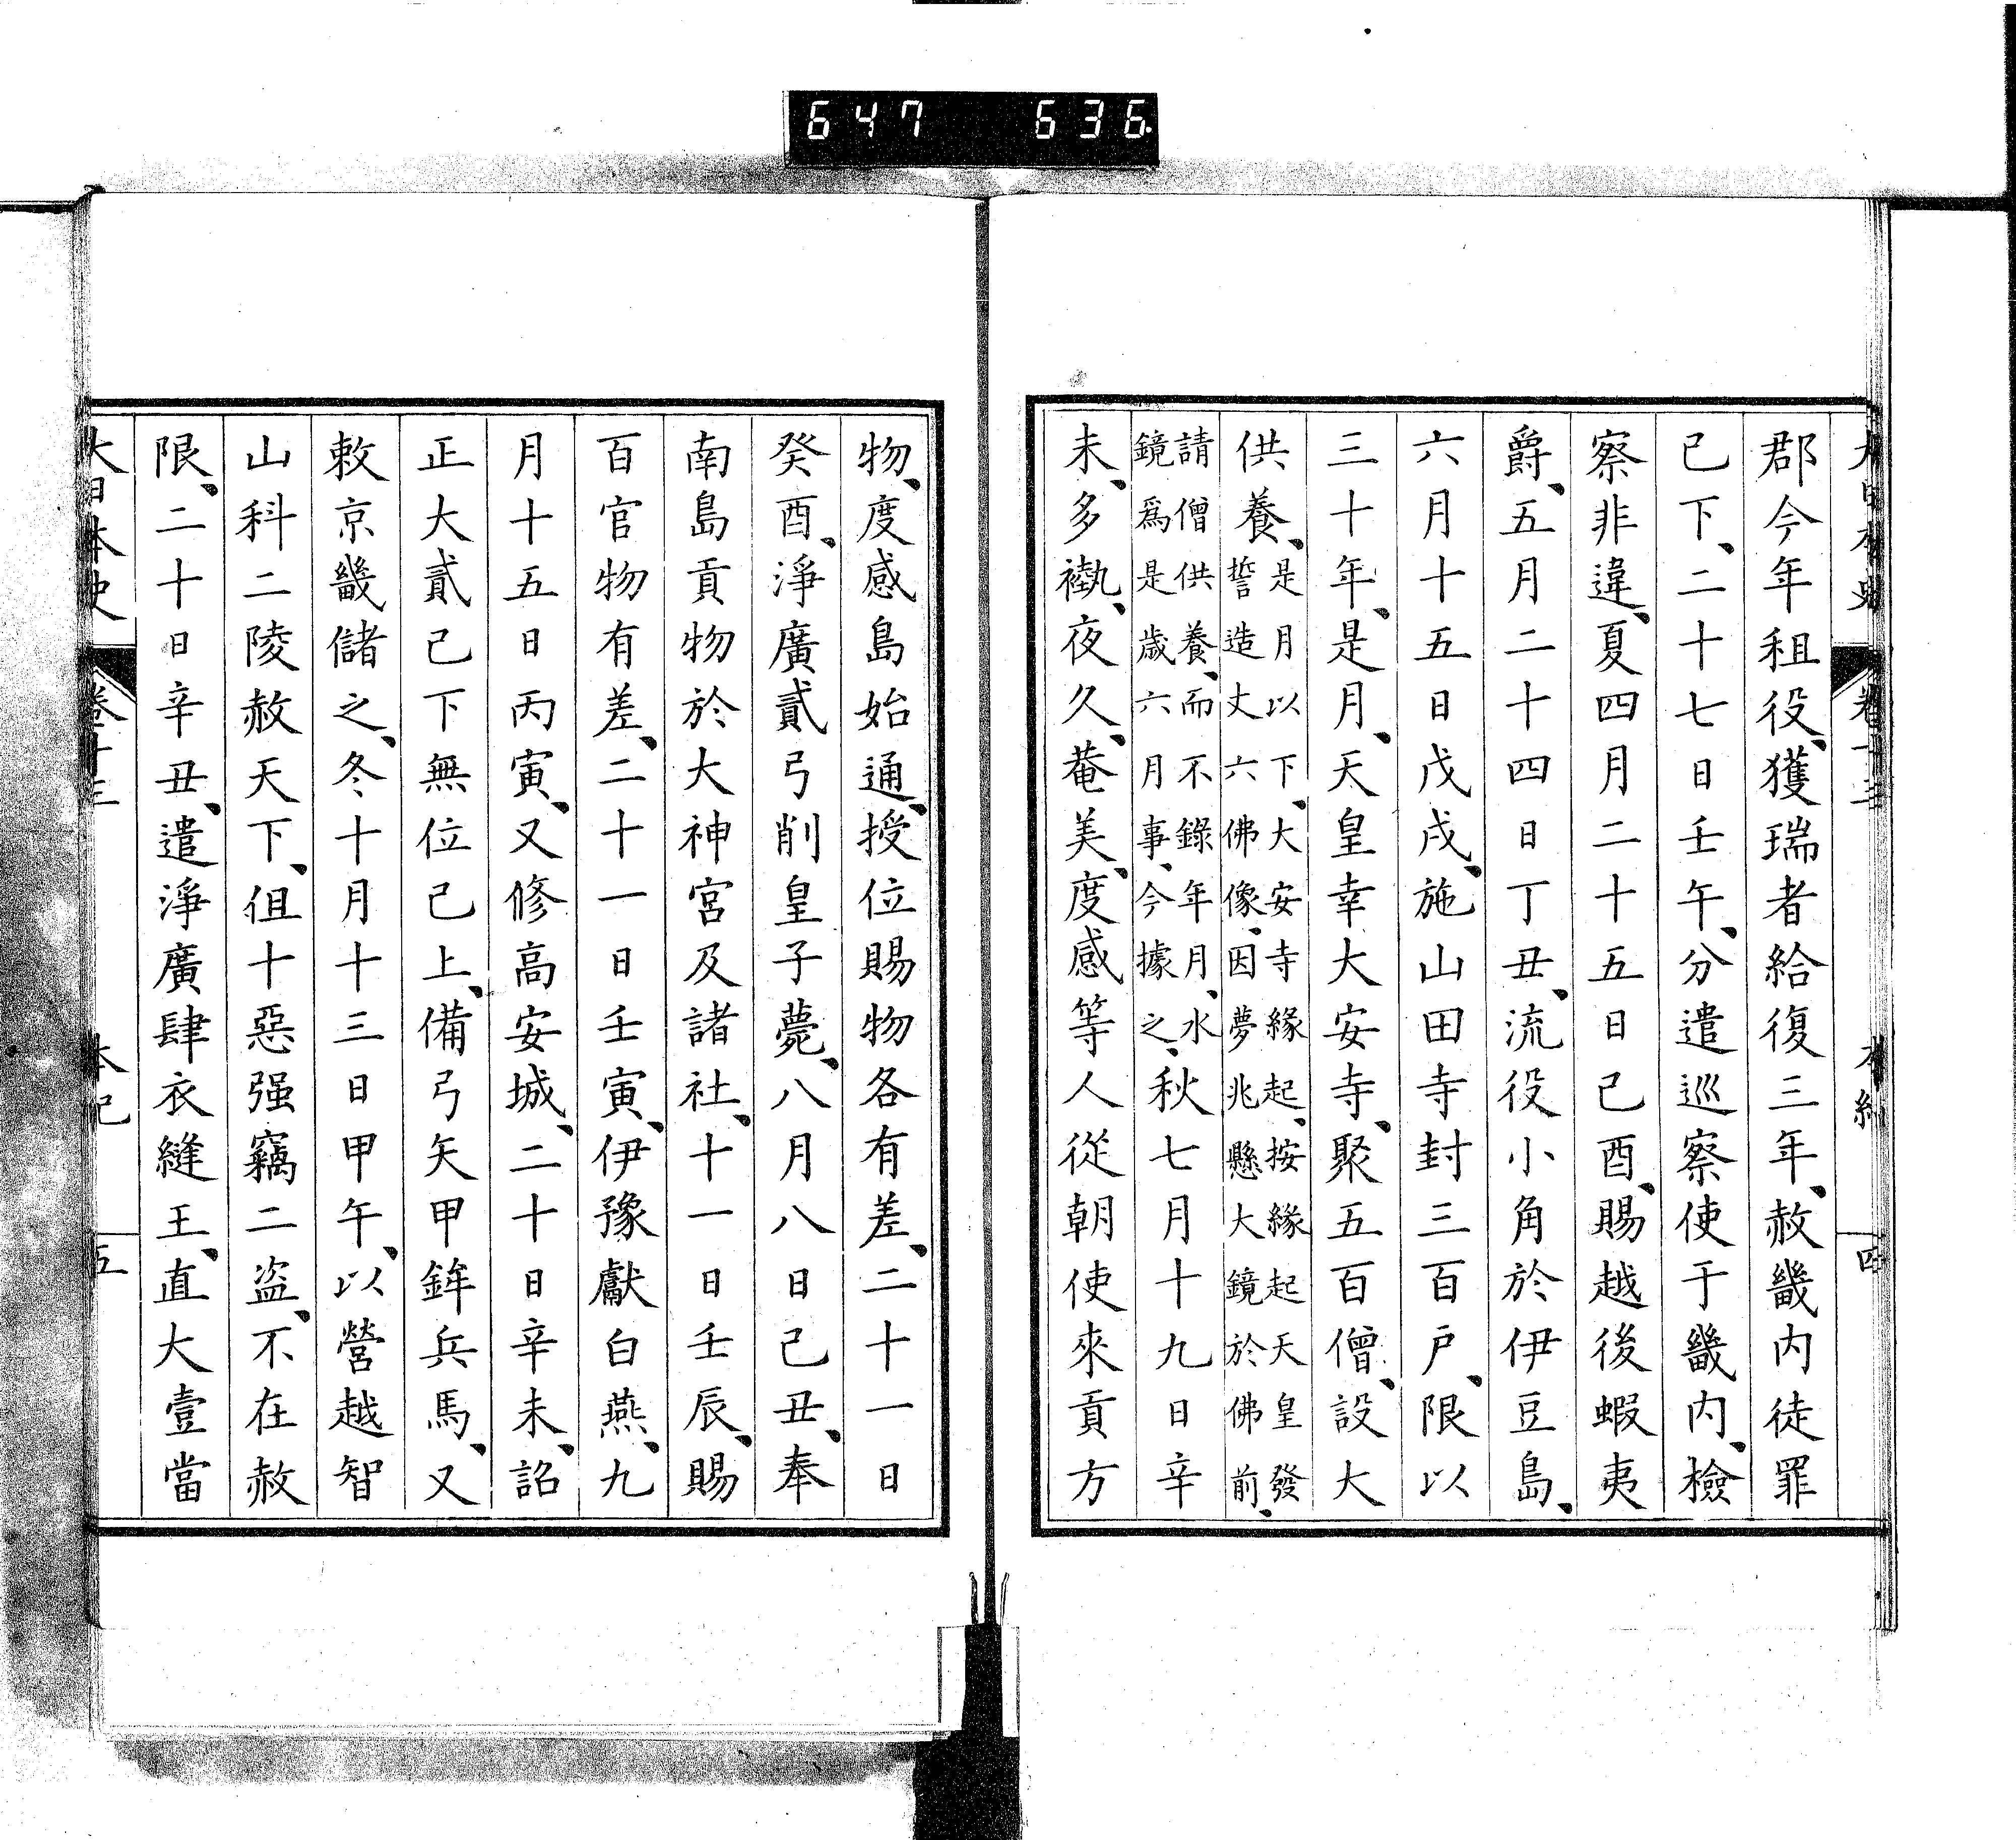 647 636
大日本史 卷十三 本紀 四
郡今年租役、獲瑞者給復三年、赦畿内徒罪
已下、二十七日壬午、分遣巡察使于畿内、檢
察非違、夏四月二十五日己酉、賜越後蝦夷
爵、五月二十四日丁丑、流役小角於伊豆島、
六月十五日戊戌、施山田寺封三百戸、限以
三十年、是月、天皇幸大安寺、聚五百僧、設大
供養、
是月以下、大安寺緣起、按緣起天皇發
誓造丈六佛像、因夢兆懸大鏡於佛前、
請僧供養、而不錄年月、水
鏡爲是歲六月事、今據之、
秋七月十九日辛
未、多褹、夜久、菴美、度感等人從朝使來貢方
物、度感島始通、授位賜物各有差、二十一日
癸酉、淨廣貳弓削皇子薨、八月八日己丑、奉
南島貢物於大神宮及諸社、十一日壬辰、賜
百官物有差、二十一日壬寅、伊豫獻白燕、九
月十五日丙寅、又修高安城、二十日辛未、詔
正大貳已下無位已上、備弓矢甲鉾兵馬、又
敕京畿儲之、冬十月十三日甲午、以營越智
山科二陵赦天下、但十惡强竊二盜、不在赦
限、二十日辛丑、遣淨廣肆衣縫王、直大壹當
大日本史 卷十三 本紀 五